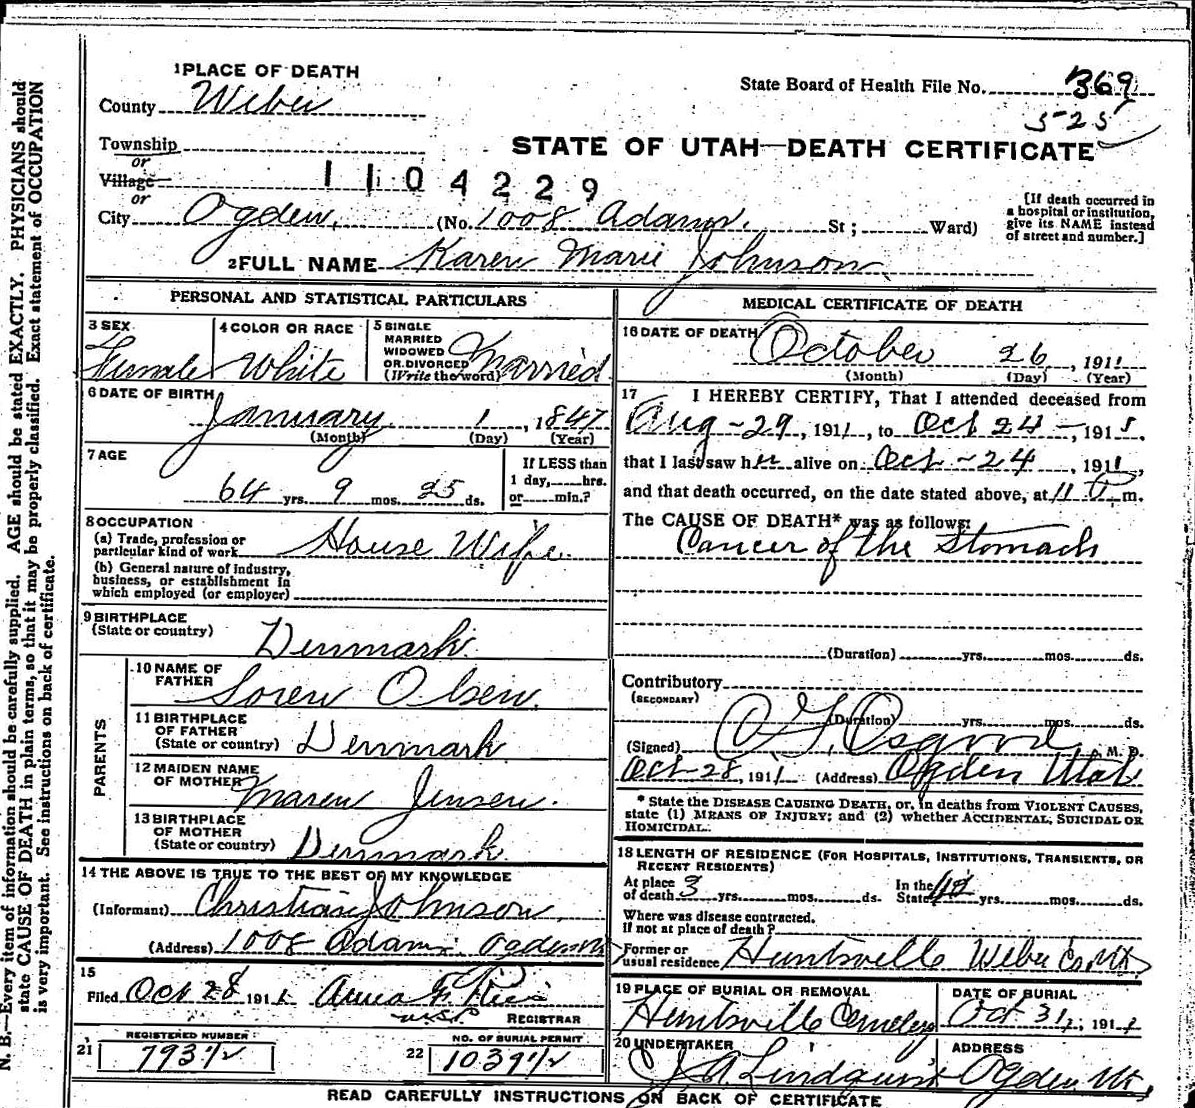 N. B.—Every item of information should be carefully supplied. AGE should be stated EXACTLY. PHYSICIANS should
state CAUSE OF DEATH in plain terms, so that it may be properly classified. Exact statement of OCCUPATION
is very important. See instructions on back of certificate.
1 PLACE OF DEATH
County Weber
State Board of Health File No. 369
525
Township
or
Village
or
STATE OF UTAH—DEATH CERTIFICATE
1104229
City Ogden, (No. 1008 Adams. St; Ward)
[If death occurred in
a hospital or institution,
give its NAME instead
of street and number.]
2 FULL NAME Karen Marie Johnson
PERSONAL AND STATISTICAL PARTICULARS
3 SEX Female
4 COLOR OR RACE White
5 SINGLE
MARRIED
WIDOWED
OR DIVORCED
(Write the word) Married
6 DATE OF BIRTH
January 1, 1847
(Month) (Day) (Year)
7 AGE
64 yrs. 9 mos. 25 ds.
If LESS than
1 day, hrs.
or min.?
8 OCCUPATION
(a) Trade, profession or
particular kind of work House Wife
(b) General nature of industry,
business, or establishment in
which employed (or employer)
9 BIRTHPLACE
(State or country) Denmark
PARENTS
10 NAME OF
FATHER Soren Olsen.
11 BIRTHPLACE
OF FATHER
(State or country) Denmark
12 MAIDEN NAME
OF MOTHER Maren Jensen.
13 BIRTHPLACE
OF MOTHER
(State or country) Denmark
14 THE ABOVE IS TRUE TO THE BEST OF MY KNOWLEDGE
(Informant) Christian Johnson
(Address) 1008 Adams. Ogden
15
Filed Oct 28 1911 Anna F.
REGISTRAR
REGISTERED NUMBER
21 793 1/2
NO. OF BURIAL PERMIT
22 1039 1/2
MEDICAL CERTIFICATE OF DEATH
16 DATE OF DEATH October 26, 1911
(Month) (Day) (Year)
17 I HEREBY CERTIFY, That I attended deceased from
Aug-29, 1911, to Oct 24-, 1911.
that I last saw her alive on Oct-24, 1911,
and that death occurred, on the date stated above, at 11 P m.
The CAUSE OF DEATH* was as follows:
Cancer of the Stomach
(Duration) yrs. mos. ds.
Contributory
(SECONDARY)
(Duration) yrs. mos. ds.
(Signed) O. G. Osgood, M. D.
Oct-28, 1911 (Address) Ogden Utah
* State the DISEASE CAUSING DEATH, or, in deaths from VIOLENT CAUSES,
state (1) MEANS OF INJURY; and (2) whether ACCIDENTAL, SUICIDAL OR
HOMICIDAL.
18 LENGTH OF RESIDENCE (FOR HOSPITALS, INSTITUTIONS, TRANSIENTS, OR
RECENT RESIDENTS)
At place
of death 3 yrs. mos. ds. In the
State yrs. mos. ds.
Where was disease contracted.
if not at place of death?
Former or
usual residence Huntsville Weber Co. Ut.
19 PLACE OF BURIAL OR REMOVAL
Huntsville Cemetery
DATE OF BURIAL
Oct 31, 1911
20 UNDERTAKER
J. A. Lindquist
ADDRESS
Ogden Ut,
READ CAREFULLY INSTRUCTIONS ON BACK OF CERTIFICATE